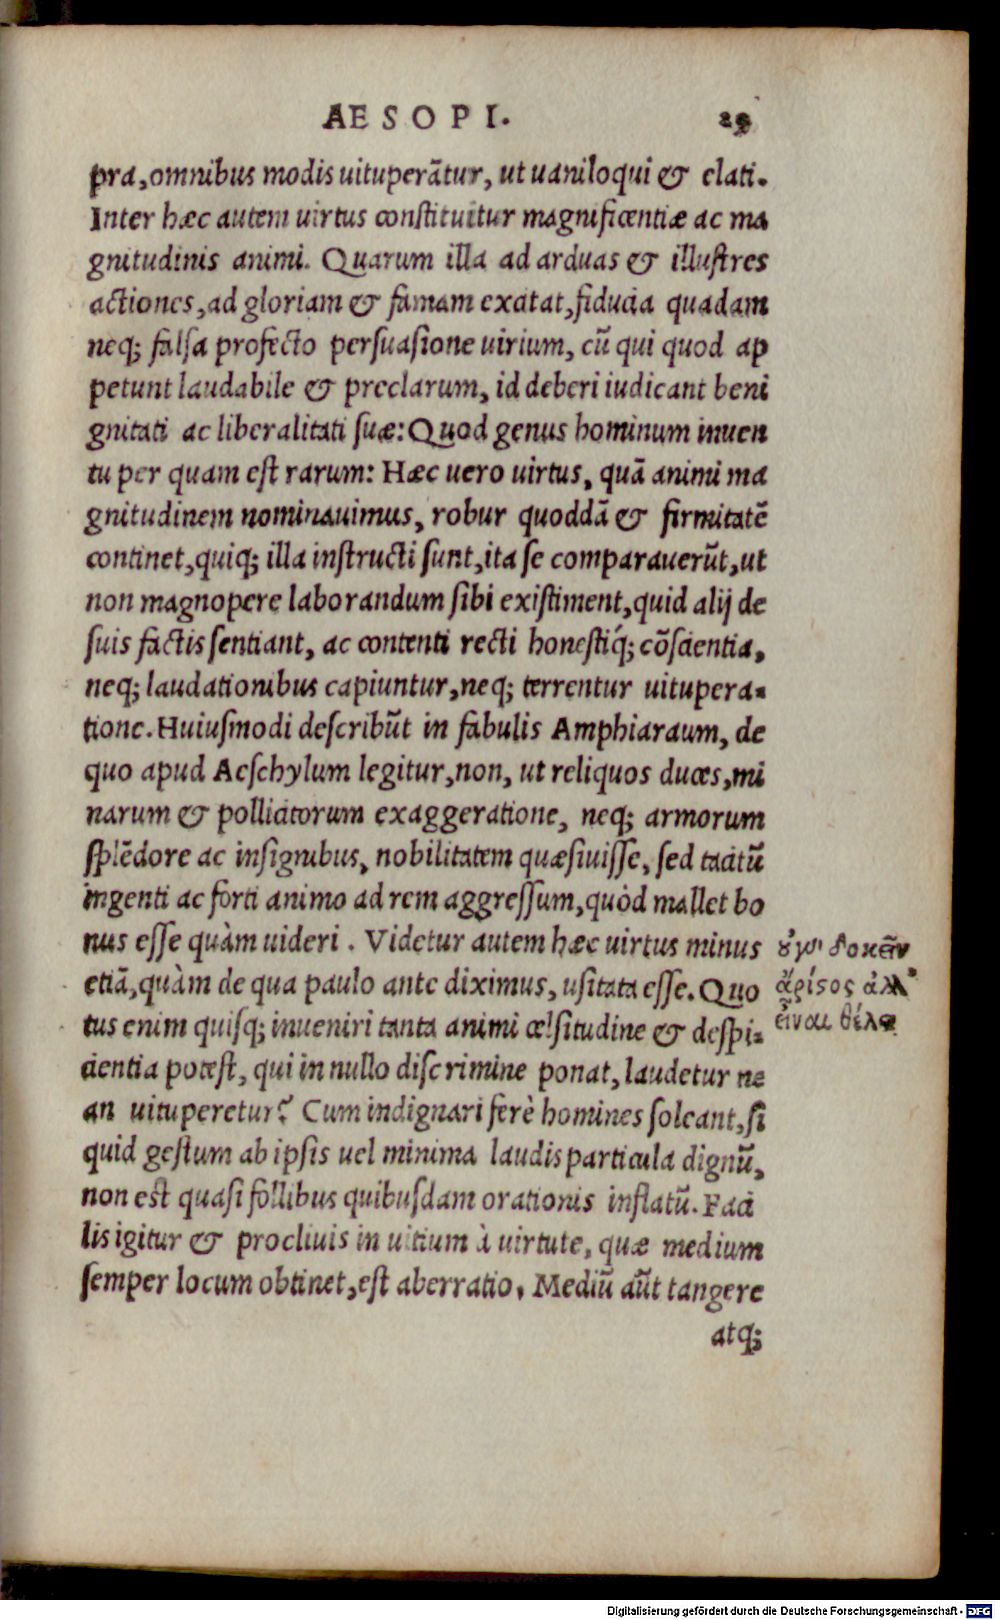 AESOPI.
29
pra, omnibus modis uituperãtur, ut uaniloqui & elati.
Inter hæc autem uirtus constituitur magnificentiæ ac ma
gnitudinis animi. Quarum illa ad arduas & illustres
actiones, ad gloriam & famam excitat, fiducia quadam
neq; falsa profecto persuasione uirium, cũ qui quod ap
petunt laudabile & preclarum, id deberi iudicant beni
gnitati ac liberalitati suæ: Quod genus hominum inuen
tu per quam est rarum: Hæc uero uirtus, quã animi ma
gnitudinem nominauimus, robur quoddã & firmitatẽ
continet, quiq; illa instructi sunt, ita se comparauerũt, ut
non magnopere laborandum sibi existiment, quid alij de
suis factis sentiant, ac contenti recti honestiq́; cõscientia,
neq; laudationibus capiuntur, neq; terrentur uitupera-
tione. Huiusmodi describũt in fabulis Amphiaraum, de
quo apud Aeschylum legitur, non, ut reliquos duces, mi
narum & pollicitorum exaggeratione, neq; armorum
splẽdore ac insignibus, nobilitatem quæsiuisse, sed tacitũ
ingenti ac forti animo ad rem aggressum, quòd mallet bo
nus esse quàm uideri. Videtur autem hæc uirtus minus
etiã, quàm de qua paulo ante diximus, usitata esse. Quo
tus enim quisq; inueniri tanta animi celsitudine & despi-
cientia potest, qui in nullo discrimine ponat, laudetur ne
an uituperetur? Cum indignari ferè homines soleant, si
quid gestum ab ipsis uel minima laudis particula dignũ,
non est quasi follibus quibusdam orationis inflatũ. Faci
lis igitur & procliuis in uitium à uirtute, quæ medium
semper locum obtinet, est aberratio. Mediũ aũt tangere
atq;
δοκεῖν
ἄριστος ἀλλ'
εἶναι θέλει
Digitalisierung gefördert durch die Deutsche Forschungsgemeinschaft - DFG